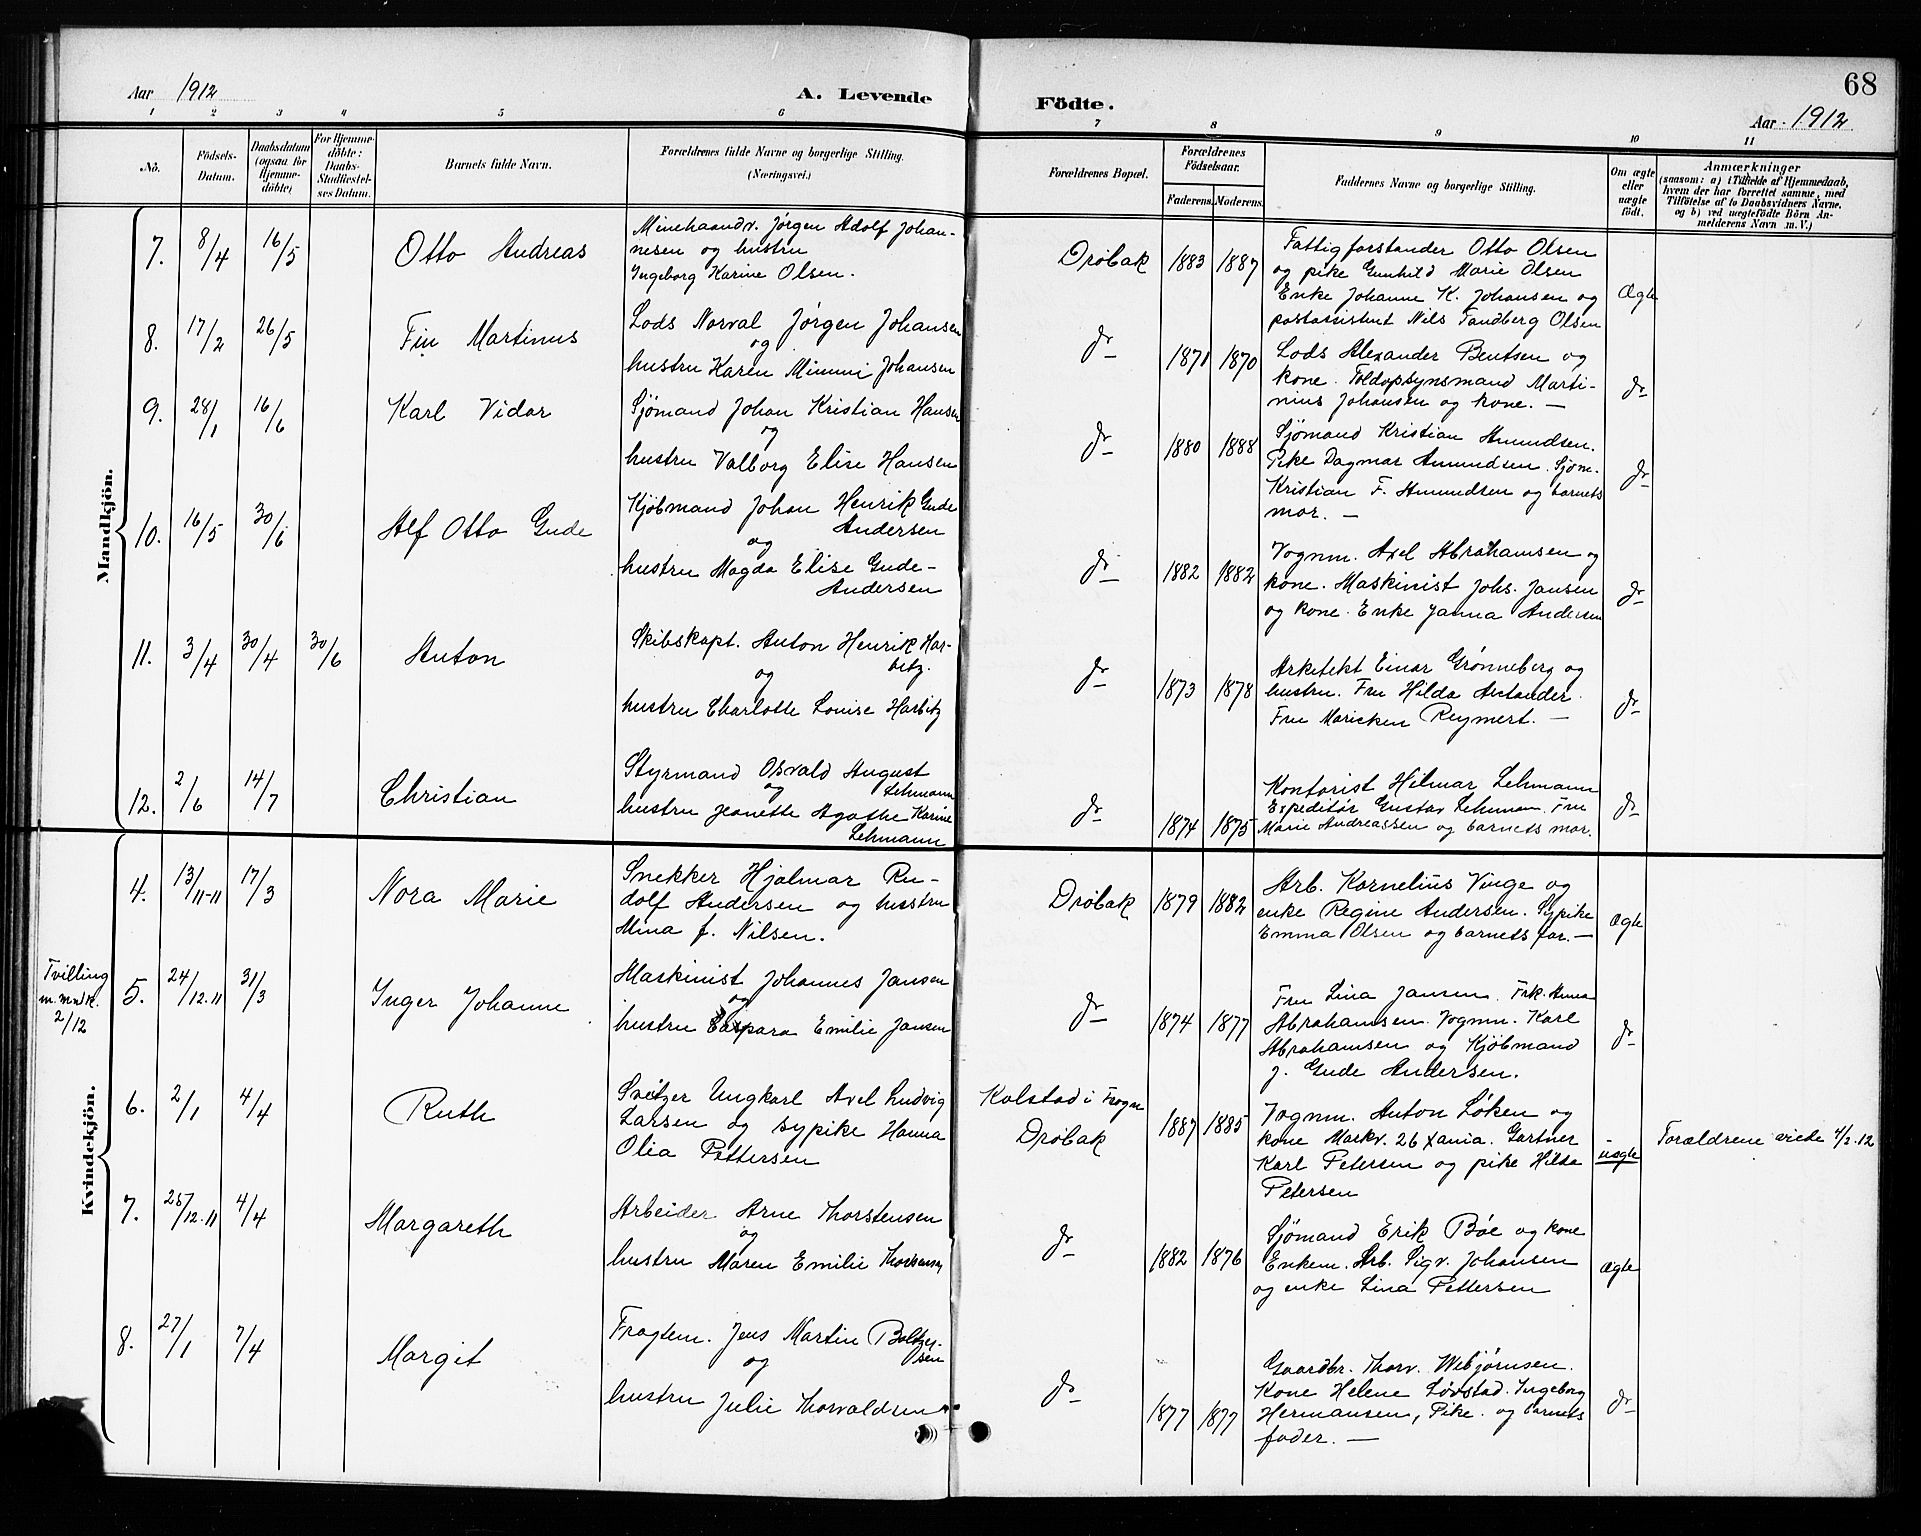 68
Aar 1912
A. Levende
Födte.
Aar 1912
1 2 3 4 5 6 7 8 9 10 11
No.
Födsels-
Datum.
Daabsdatum
(ogsaa for
Hjemme-
döbte)
For Hjemme-
döbte:
Daabs-
Stadfæstel-
ses Datum.
Barnets fulde Navn.
Forældrenes fulde Navne og borgerlige Stilling.
(Næringsvei.)
Forældrenes Bopæl.
Forældrenes
Födselsaar.
Faderens.
Moderens.
Faddernes Navne og borgerlige Stilling.
Om ægte
eller
uægte
födt.
Anmærkninger
(saasom: a) i Tilfælde af Hjemmedaab,
hvem der har forrettet samme, med
Tilföielse af to Daabsvidners Navne,
og b) ved uegtefödte Börn An-
melderens Navn m. V.)
Mandkjön.
7. 8/4 16/5 Otto Andreas
Minehaandv. Jörgen Adolf Johan-
nesen og hustru
Ingeborg Karine Olsen.
Dröbak 1883 1887
Fattigforstander Otto Olsen
og pike Gunhild Marie Olsen
Enke Johanne K. Johansen og
postassistent Nils Tandberg Olsen
Ægte
8. 17/2 26/5 Fin Martinus
Lods Norval Jörgen Johansen
og
hustru Karen Mimmi Johansen
do 1871 1870
Lods Alexander Bentsen og
kone. Toldopsynsmand Marti-
nius Johansen og kone. —
do
9. 28/1 16/6 Karl Vidar
Sjömand Johan Kristian Hansen
og
hustru Valborg Elise Hansen
do 1880 1888
Sjömand Kristian Amundsen.
Pike Dagmar Amundsen. Sjöm.
Kristian F. Amundsen og barnets
mor. —
do
10. 16/5 30/6 Alf Otto Gude
Kjöbmand Johan Henrik Gude
Andersen
og
hustru Magda Elise Gude-
Andersen
do 1882 1882
Vognm. Axel Abrahamsen og
kone. Maskinist Johs. Jansen
og kone. Enke Janna Andersen
do
11. 3/4 30/4 30/6 Anton
Skibskapt. Anton Henrik Har-
bitz.
og
hustru Charlotte Louise Harbitz
do 1873 1878
Arkitekt Einar Grönneberg og
hustru. Fru Hilda Arctander.
Fru Maricken Reymert. —
do
12. 2/6 14/7 Christian
Styrmand Osvald August
og Lehmann
hustru Jeanette Agathe Karine
Lehmann
do 1874 1875
Kontorist Hilmar Lehmann
Expeditör Gustav Lehman. Fru
Marie Andreassen og barnets mor.
do
Kvindekjön.
4. 13/11-11 17/3 Nora Marie
Snekker Hjalmar Ru-
dolf Andersen og hustru
Mina f. Nilsen.
Dröbak 1879 1882
Arb. Kornelius Vinge og
enke Regine Andersen. Sypike
Emma Olsen og barnets far. —
ægte
Tvilling
m. mndk.
2/12
5. 24/12.11 31/3 Inger Johanne
Maskinist Johannes Jansen
og
hustru Caspara Emilie Jansen
do 1874 1877
Fru Lina Jansen. Frk. Anna
Abrahamsen. Vognm. Karl
Abrahamsen og Kjöbmand
J. Gude Andersen.
do
6. 2/1 4/4 Ruth
Sveitzer Ungkarl Axel Ludvig
Larsen og sypike Hanna
Olea Pettersen
Kolstad i Frogn
Dröbak 1887 1885
Vognm. Anton Löken og
kone Markv. 26 Xania. Gartner
Karl Petersen og pike Hilda
Petersen
uægte
Forældrene viede 4/2.12
7. 25/12.11 4/4 Margareth
Arbeider Arne Thorstensen
og
hustru Maren Emilie Thorstensen
do 1882 1876
Sjömand Erik Böe og kone
Enkem. Arb. Sigv. Johansen
og enke Lina Pettersen
ægte
8. 27/1 7/4 Margit
Fragtem. Jens Martin Baltzer-
sen
og
hustru Julie Thorvaldsen
do 1877 1877
Gaardbr. Thorv. Webjörnsen.
Kone Helene Lövstad. Ingeborg
Hermansen, Pike. og barnets
fader. —
do